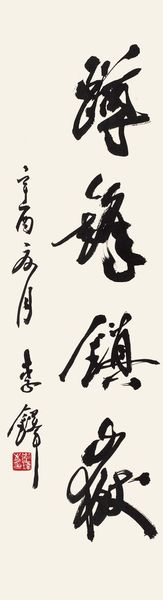 蹲鋒鎮嶽
辛酉夏月 李鐸